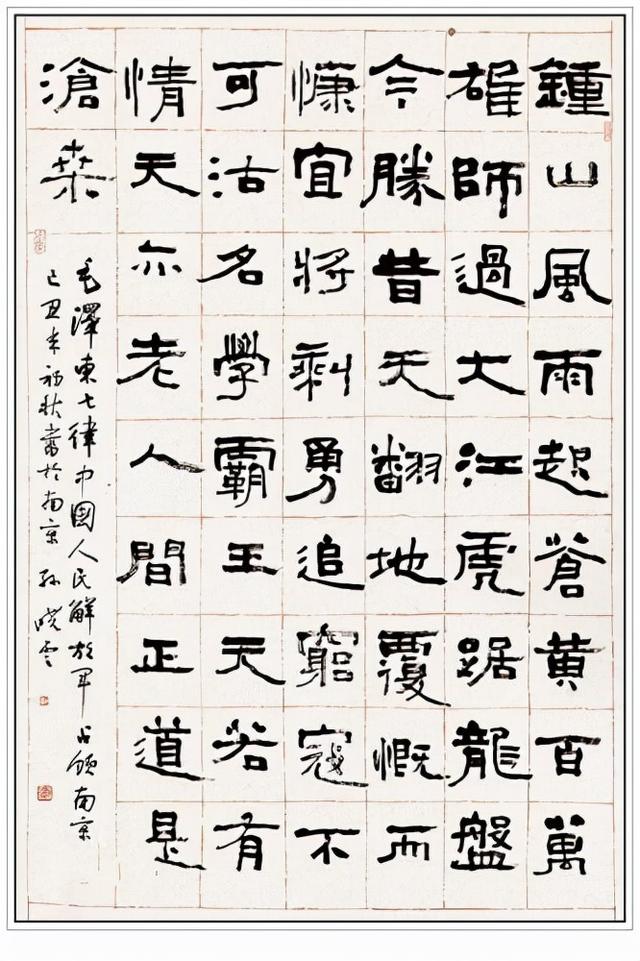 鍾山風雨起蒼黃百萬
雄師過大江虎踞龍盤
今勝昔天翻地覆慨而
慷宜將剩勇追窮寇不
可沽名學霸王天若有
情天亦老人間正道是
滄桒
毛澤東七律中國人民解放軍占領南京
己丑年初秋書於南京 孫曉雲